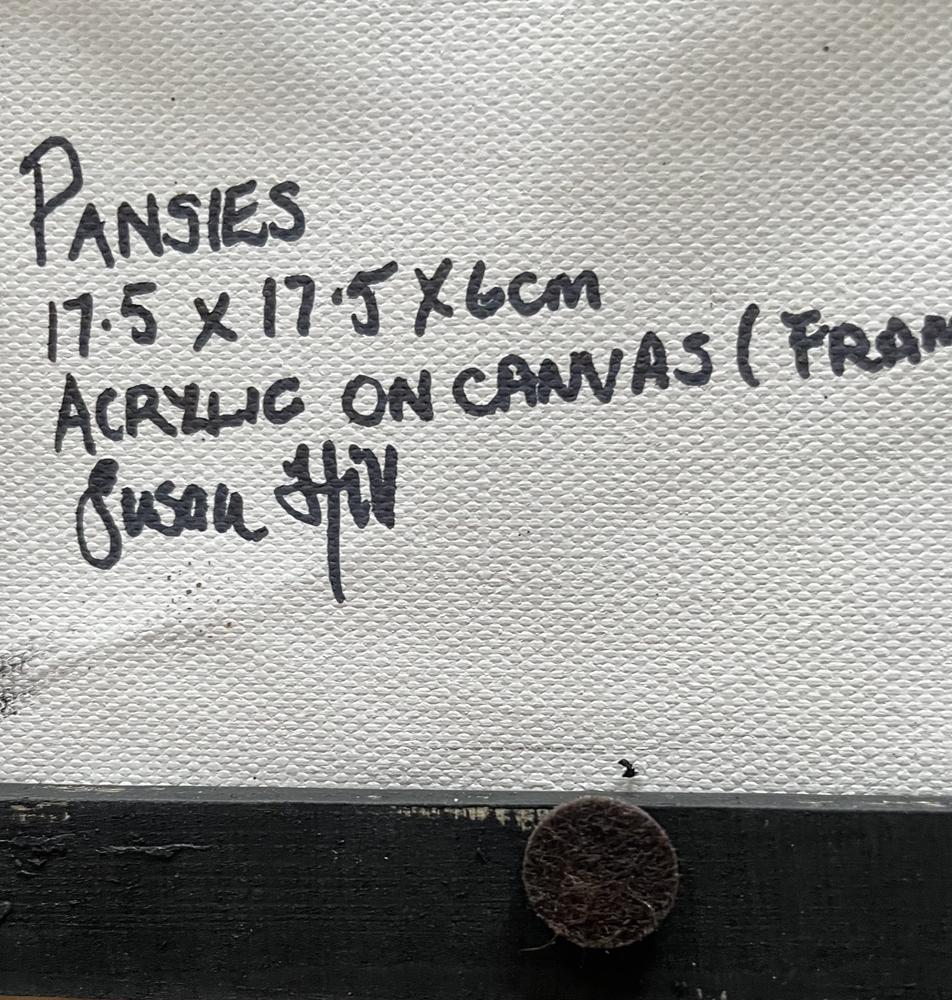 PANSIES
17.5 X 17.5 X 6cm
ACRYLIC ON CANVAS (FRAM
Susan Hill